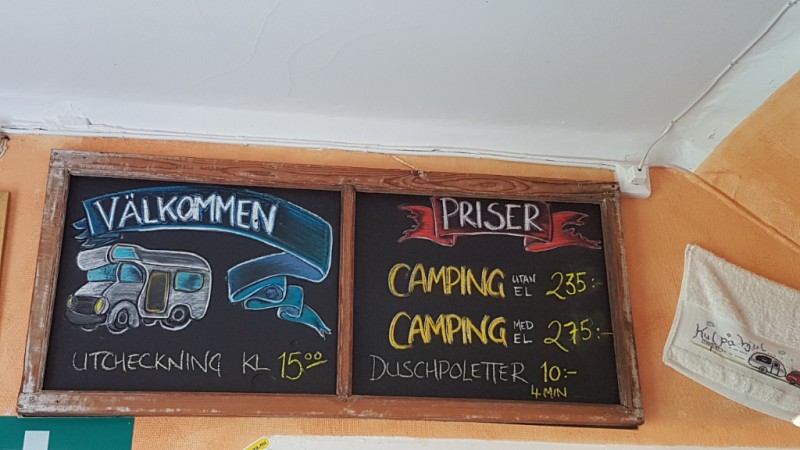 VÄLKOMMEN
UTCHECKNING KL 15⁰⁰
PRISER
CAMPING UTAN EL 235:-
CAMPING MED EL 275:-
DUSCHPOLETTER 10:-
4 MIN
Kul på hjul